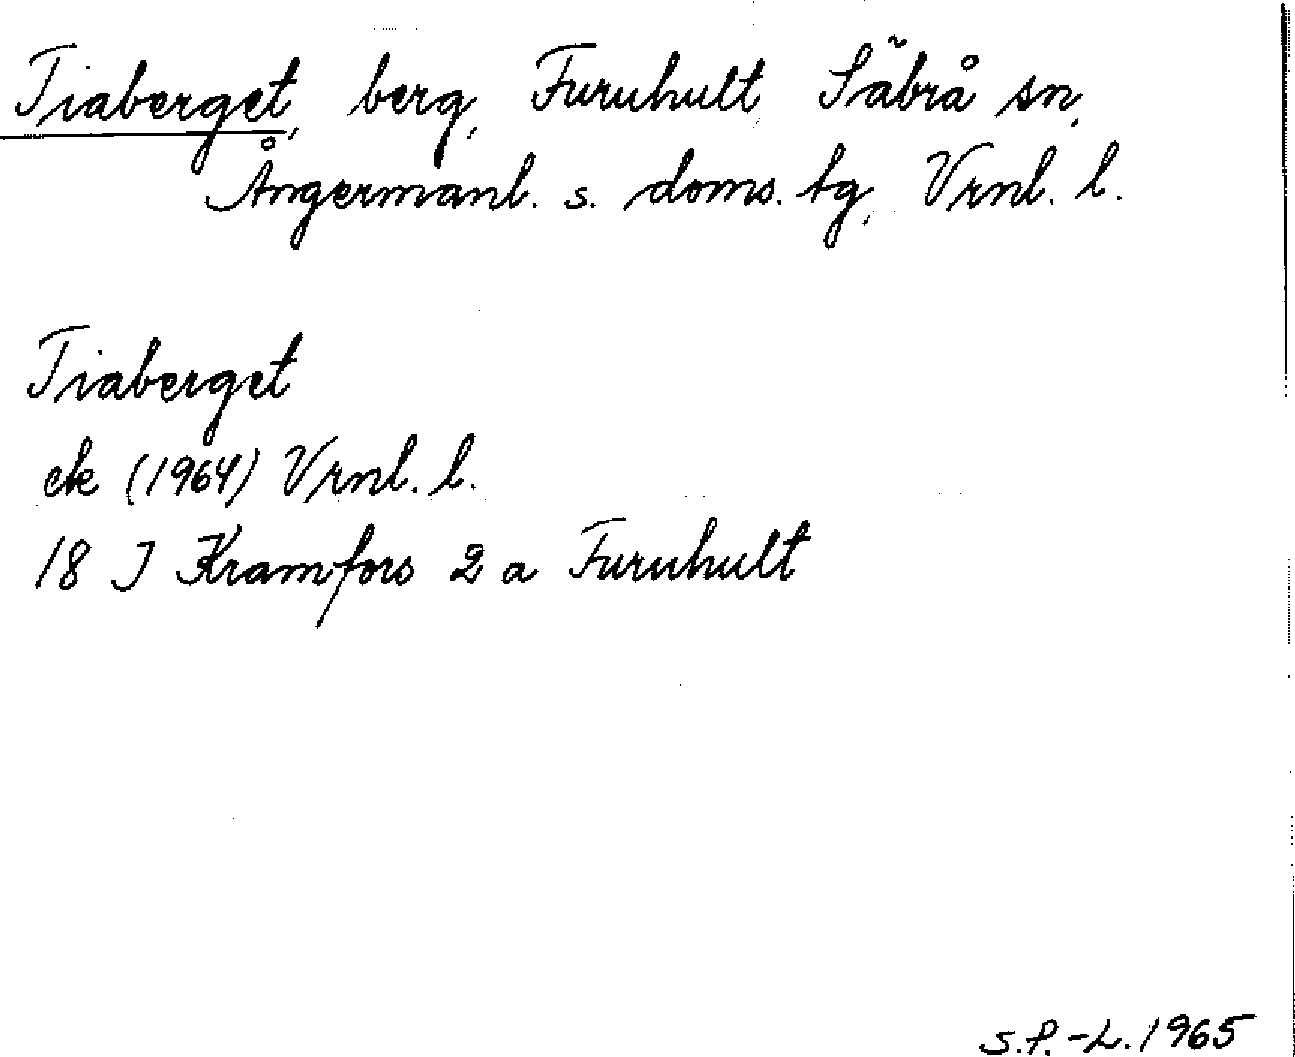 Tiaberget, berg, Furuhult, Säbrå sn,
Ångermanl. s. doms. tg, Vrnl. l.
Tiaberget
ek (1964) Vrnl. l.
18 J Kramfors 2 a Furuhult
S.P.-L. 1965